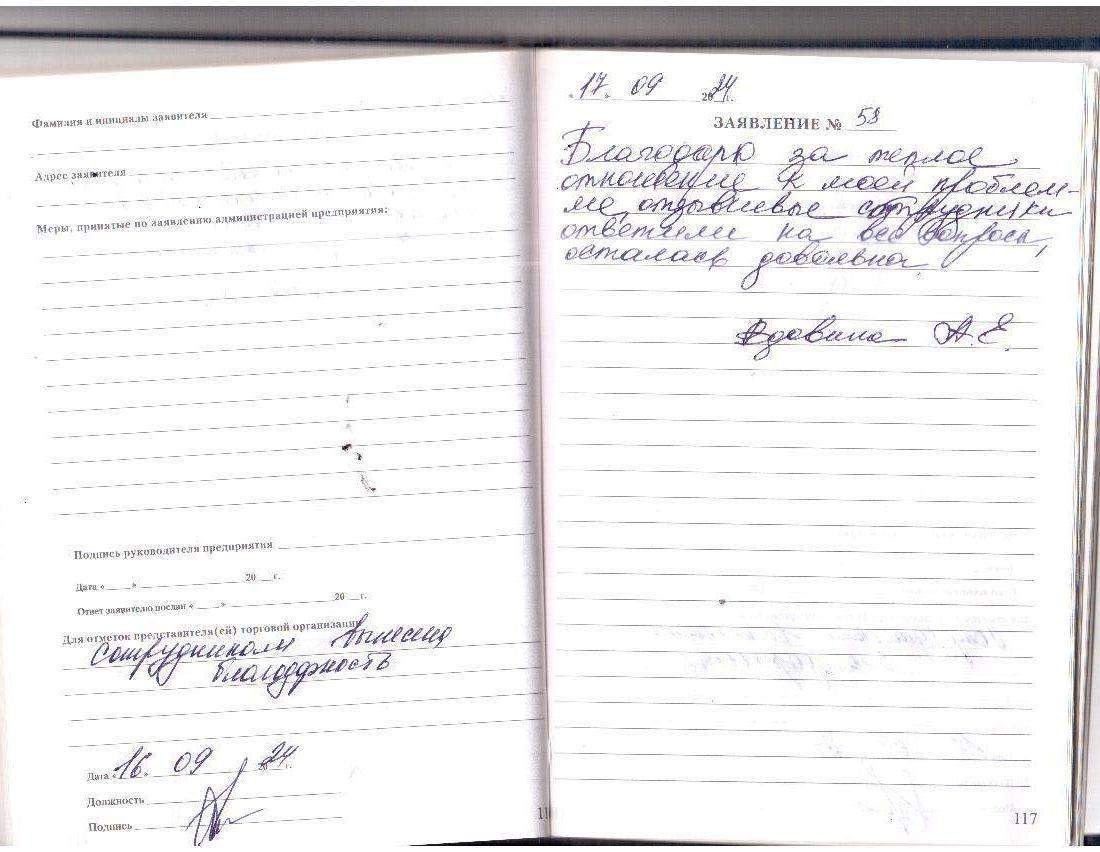 Фамилия и инициалы заявителя
Адрес заявителя
Меры, принятые по заявлению администрацией предприятия:
Подпись руководителя предприятия
Дата « » 20 г.
Ответ заявителю послан « » 20 г.
Для отметок представителя(ей) торговой организации
Сотрудникам вынесена
благодарность
Дата «16» 09 2024 г.
Должность
Подпись
«17» 09 2024 г.
ЗАЯВЛЕНИЕ № 58
Благодарю за теплое
отношение к моей проблем-
ме, отзывчивые сотрудники
ответили на все вопросы,
осталась довольна.
Вдовина А.Е.
117